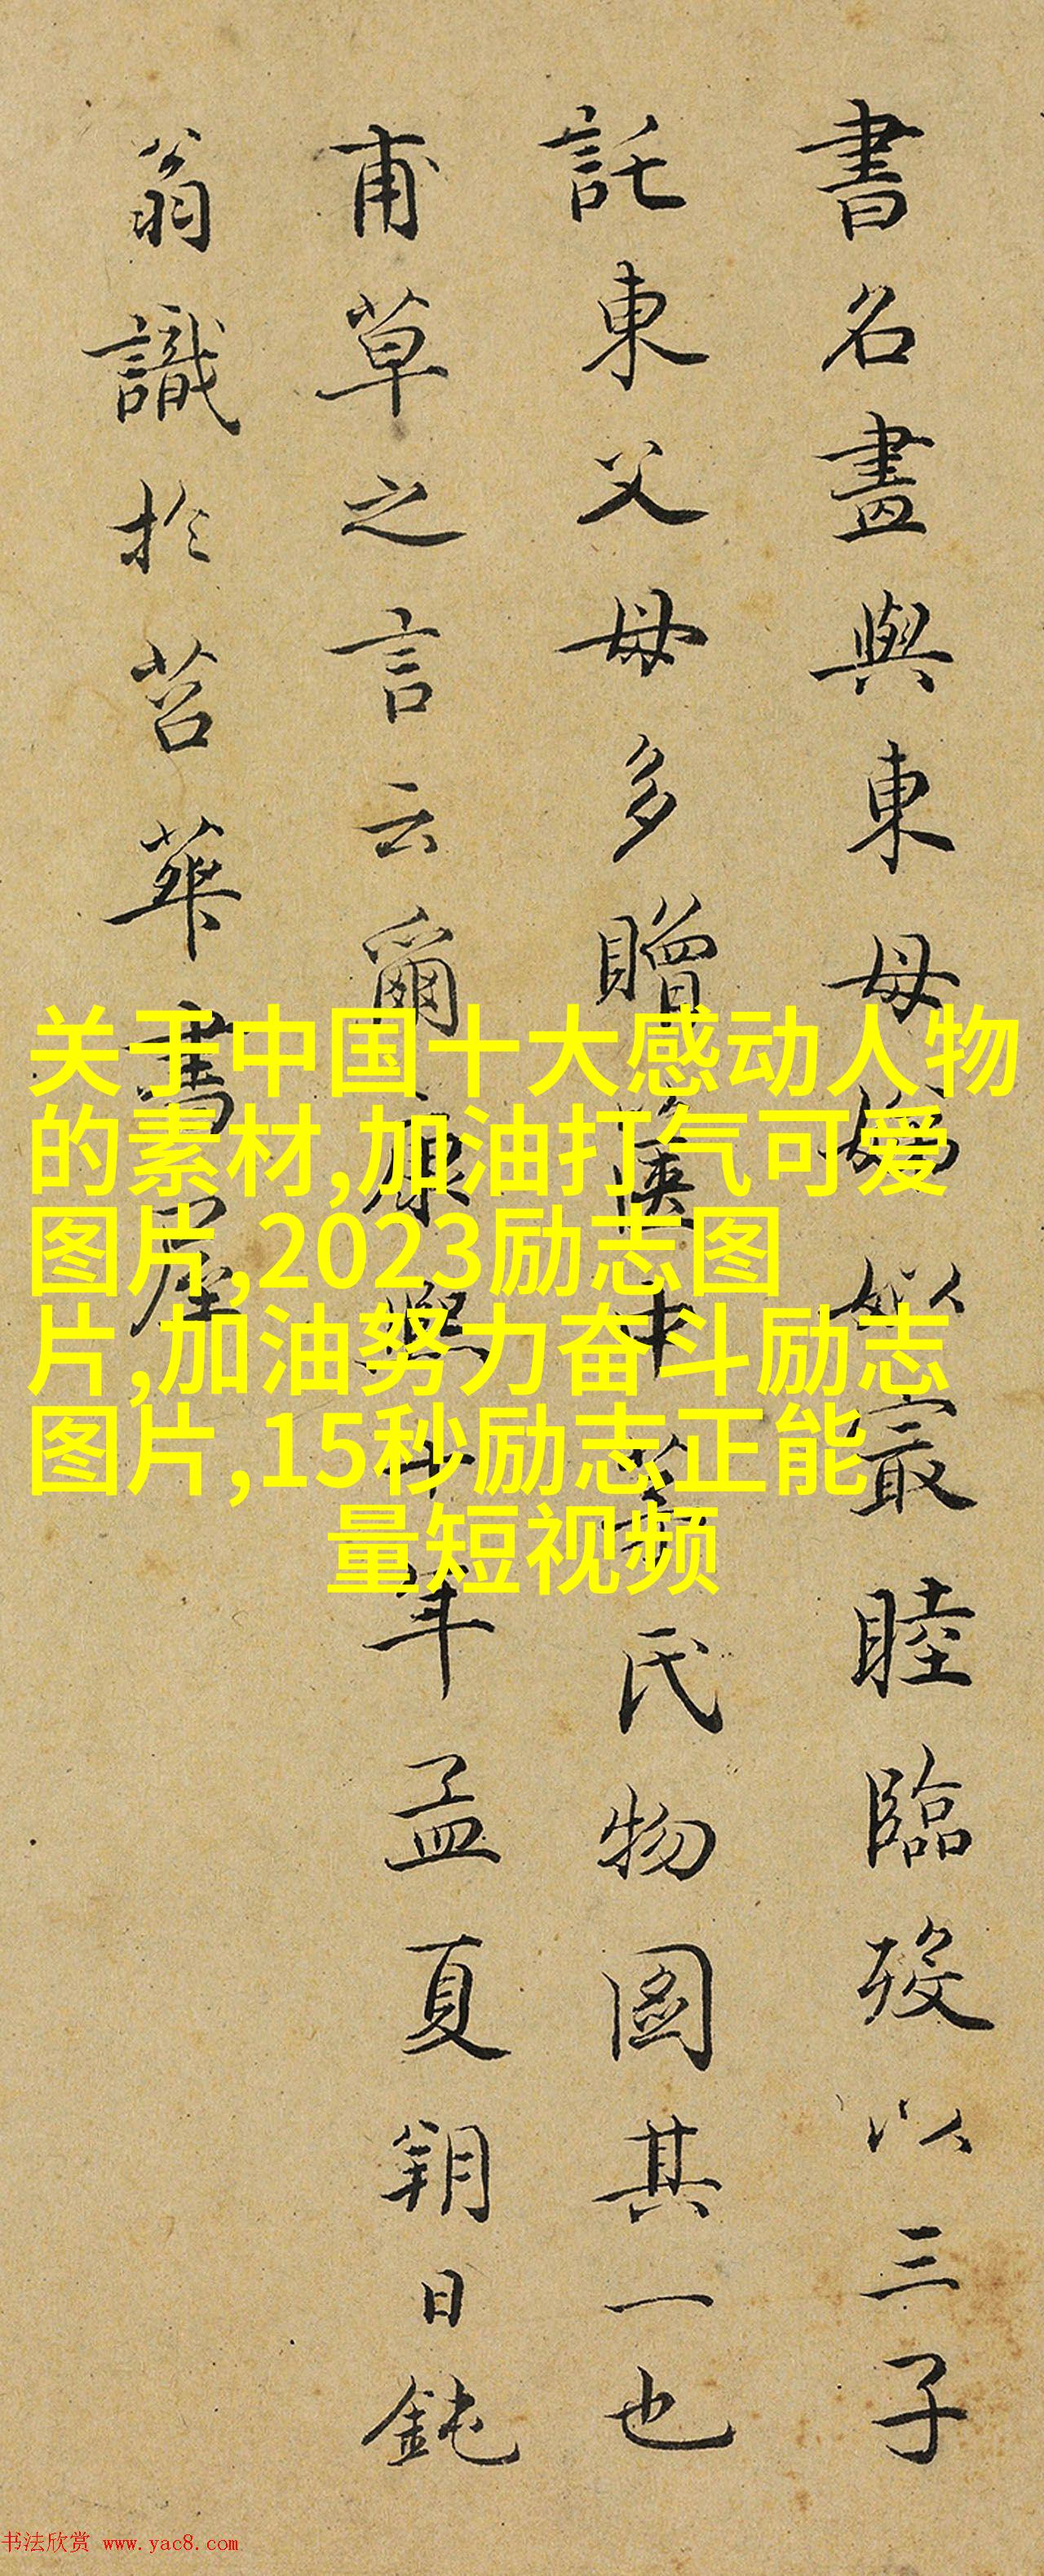 書名畫與東母姒最睦臨歿以三子
託東父母多贈中氏物圖其一也
甫草之言云爾康熙十年孟夏朔日鈍
翁識於苕華書屋
关于中国十大感动人物
的素材,加油打气可爱
图片,2023励志图
片,加油努力奋斗励志
图片,15秒励志正能
量短视频
书法欣赏 www.yac8.com